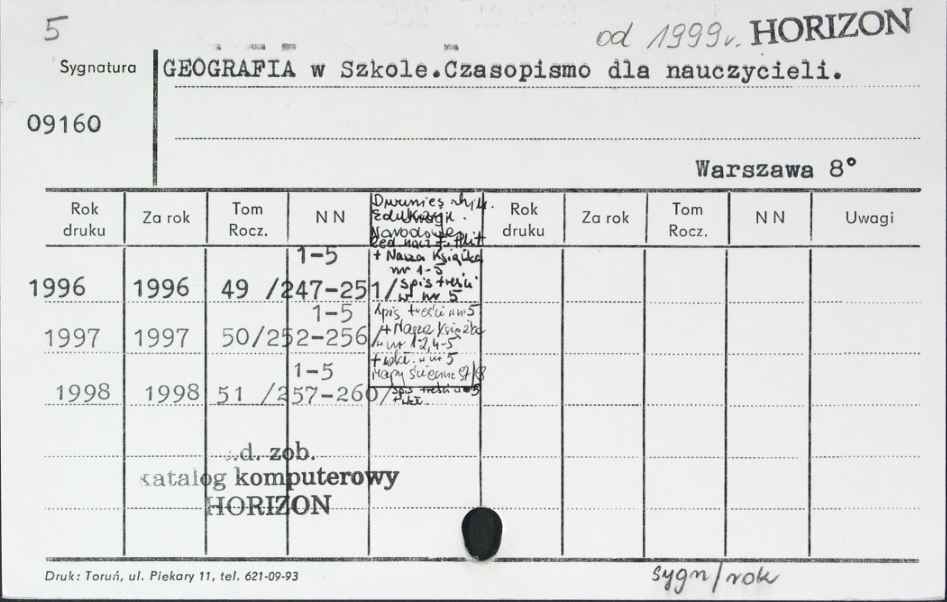 5
od 1999r. HORIZON
Sygnatura GEOGRAFIA w Szkole.Czasopismo dla nauczycieli.
09160
Warszawa 8°
Rok druku Za rok Tom Rocz. NN Uwagi Rok druku Za rok Tom Rocz. NN Uwagi
Edukacji
Narodowej
+ Nasza Książka
nr 1-5
1-5
1996 1996 49 /247-251/ spis treści
w nr 5
1-5 spis treści w nr 5
1997 1997 50/252-256/ + Nasza Książka
w nr 1,2,4-5
+ wkł. w nr 5
1-5 Mapy ścienne
1998 1998 51 /257-260/ spis treści w nr 5
+ wkł.
.d. zob.
katalog komputerowy
HORIZON
Druk: Toruń, ul. Piekary 11, tel. 621-09-93
sygn/rok